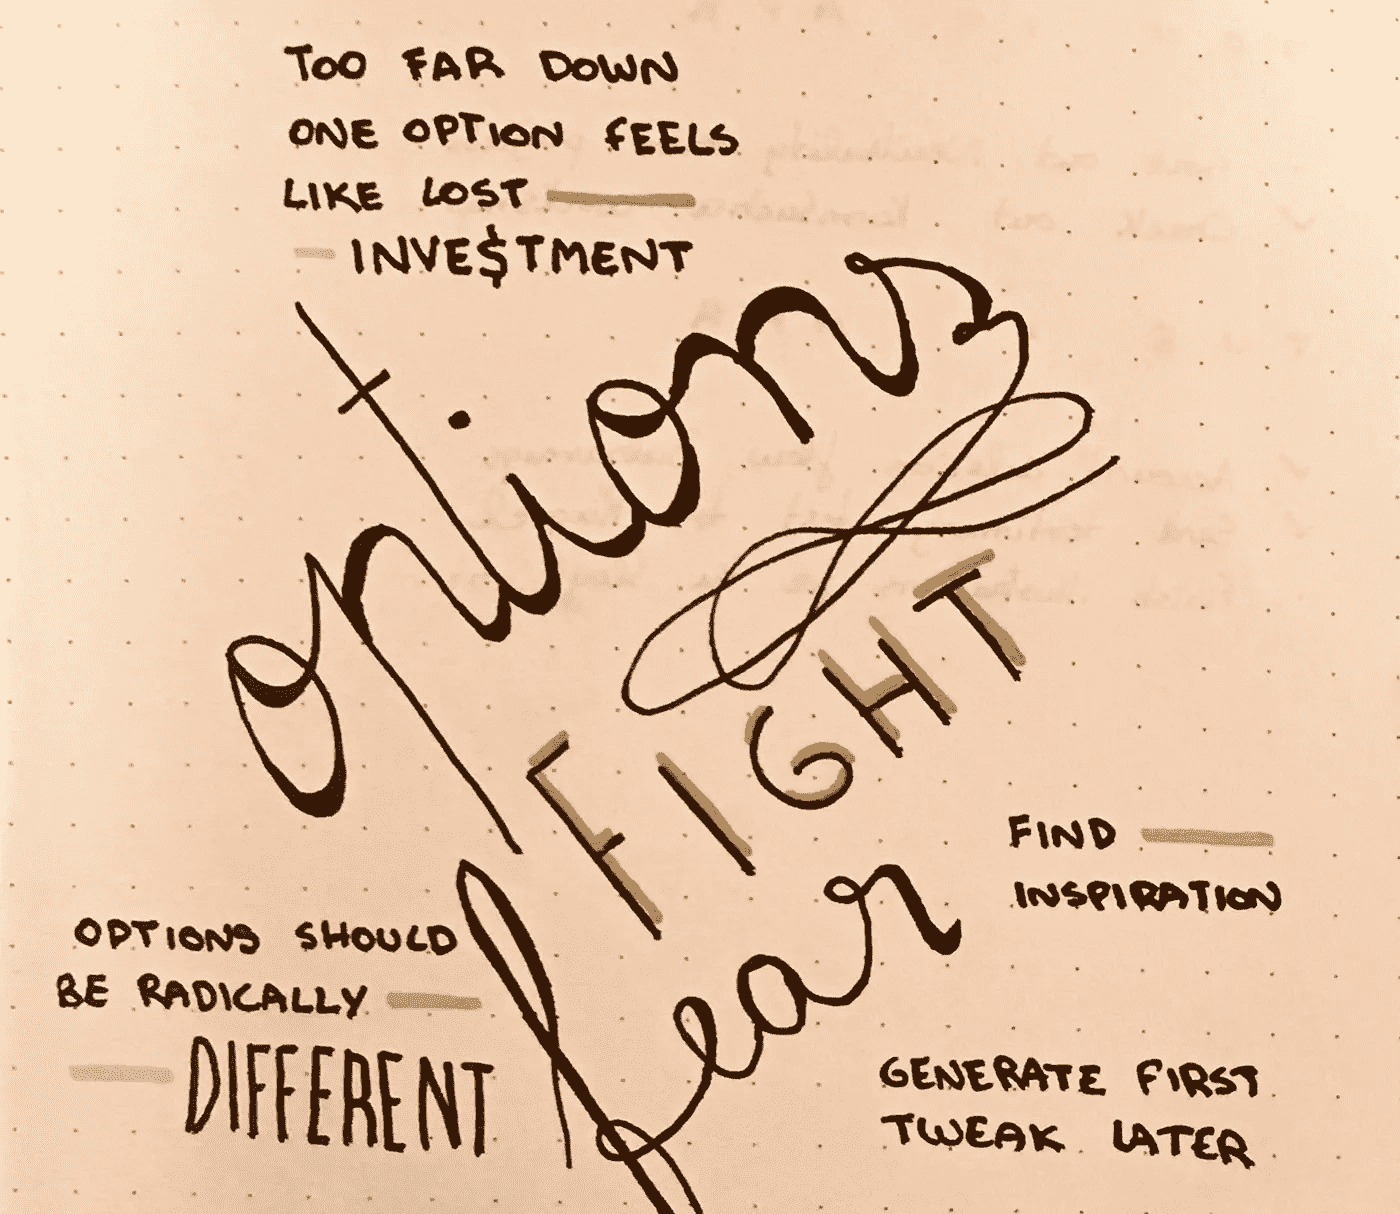 TOO FAR DOWN
ONE OPTION FEELS
LIKE LOST
INVE$TMENT
options
FIGHT
fear
FIND
INSPIRATION
OPTIONS SHOULD
BE RADICALLY
DIFFERENT
GENERATE FIRST
TWEAK LATER